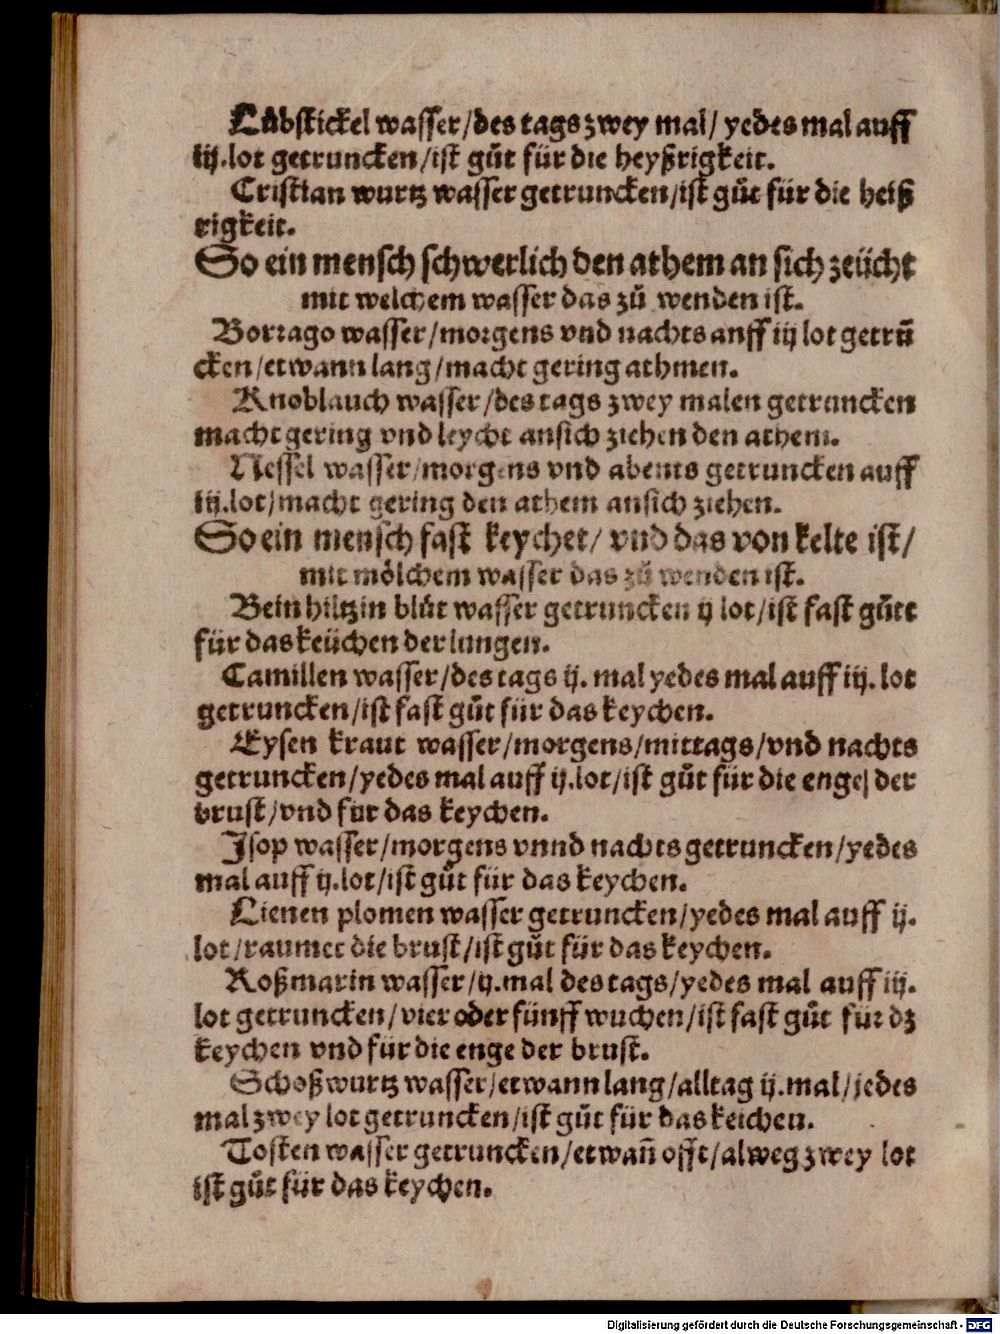 Lůbstickel wasser/des tags zwey mal/ yedes mal auff
iij.lot getruncken/ist gůt für die heyßrigkeit.
Cristian wurtz wasser getruncken/ist gůt für die heiß
rigkeit.
So ein mensch schwerlich den athem an sich zeücht
mit welchem wasser das zů wenden ist.
Borrago wasser/morgens vnd nachts anff iij lot getrū
cken/etwann lang/macht gering athmen.
Knoblauch wasser/des tags zwey malen getruncken
macht gering vnd leycht ansich ziehen den athem.
Nessel wasser/morgens vnd abents getruncken auff
iij.lot/macht gering den athem ansich ziehen.
So ein mensch fast keychet/ vnd das von kelte ist/
mit mölchem wasser das zů wenden ist.
Bein hiltzin blůt wasser getruncken ij lot/ist fast gůtt
für das keüchen der lungen.
Camillen wasser/des tags ij. mal yedes mal auff iij. lot
getruncken/ist fast gůt für das keychen.
Eysen kraut wasser/morgens/mittags/vnd nachts
getruncken/yedes mal auff ij.lot/ist gůt für die enge der
brust/vnd für das keychen.
Isop wasser/morgens vnnd nachts getruncken/yedes
mal auff ij.lot/ist gůt für das keychen.
Lienen plomen wasser getruncken/yedes mal auff ij.
lot/raumet die brust/ist gůt für das keychen.
Roßmarin wasser/ij.mal des tags/yedes mal auff iij.
lot getruncken/vier oder fünff wuchen/ist fast gůt für dz
keychen vnd für die enge der brust.
Schoßwurtz wasser/etwann lang/alltag ij.mal/jedes
mal zwey lot getruncken/ist gůt für das keichen.
Tosten wasser getruncken/etwañ offt/alweg zwey lot
ist gůt für das keychen.
Digitalisierung gefördert durch die Deutsche Forschungsgemeinschaft - DFG